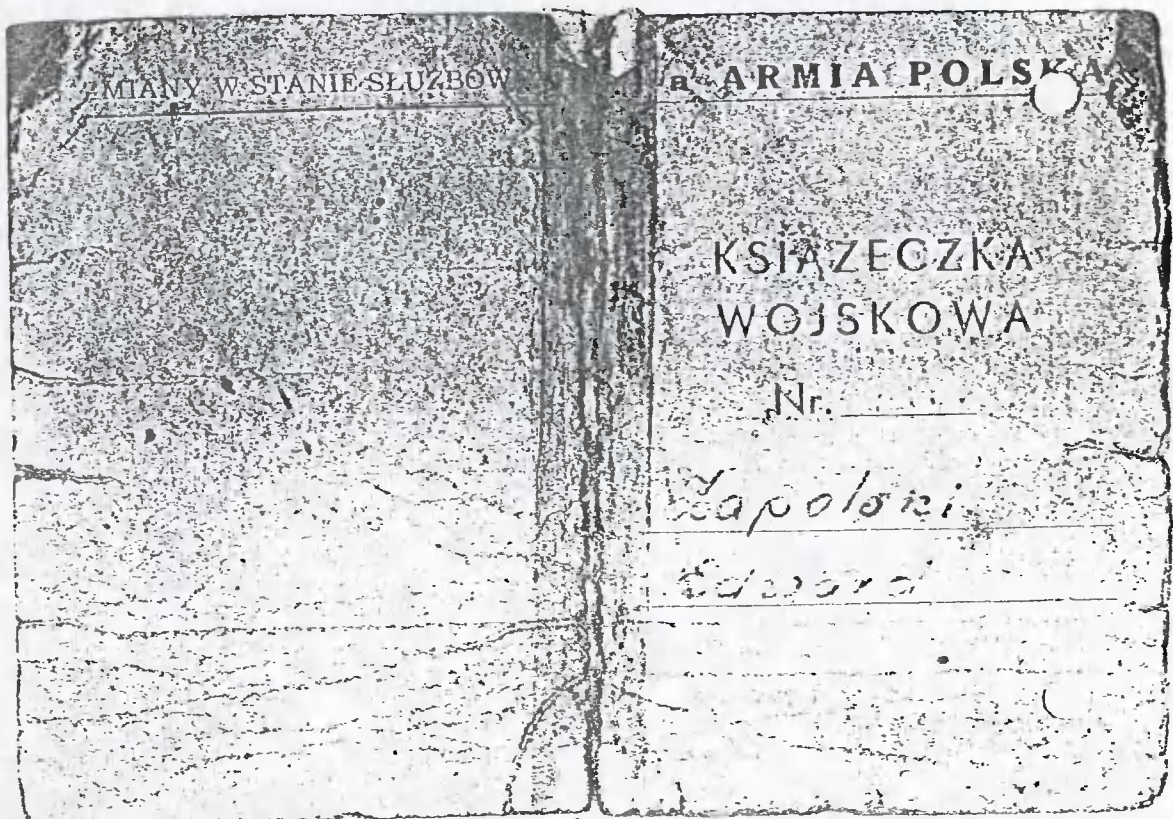 MIANY W STANIE SŁUŻBOW
a ARMIA POLSKA
KSIĄŻECZKA
WOJSKOWA
Nr.
Zapolski
Edward